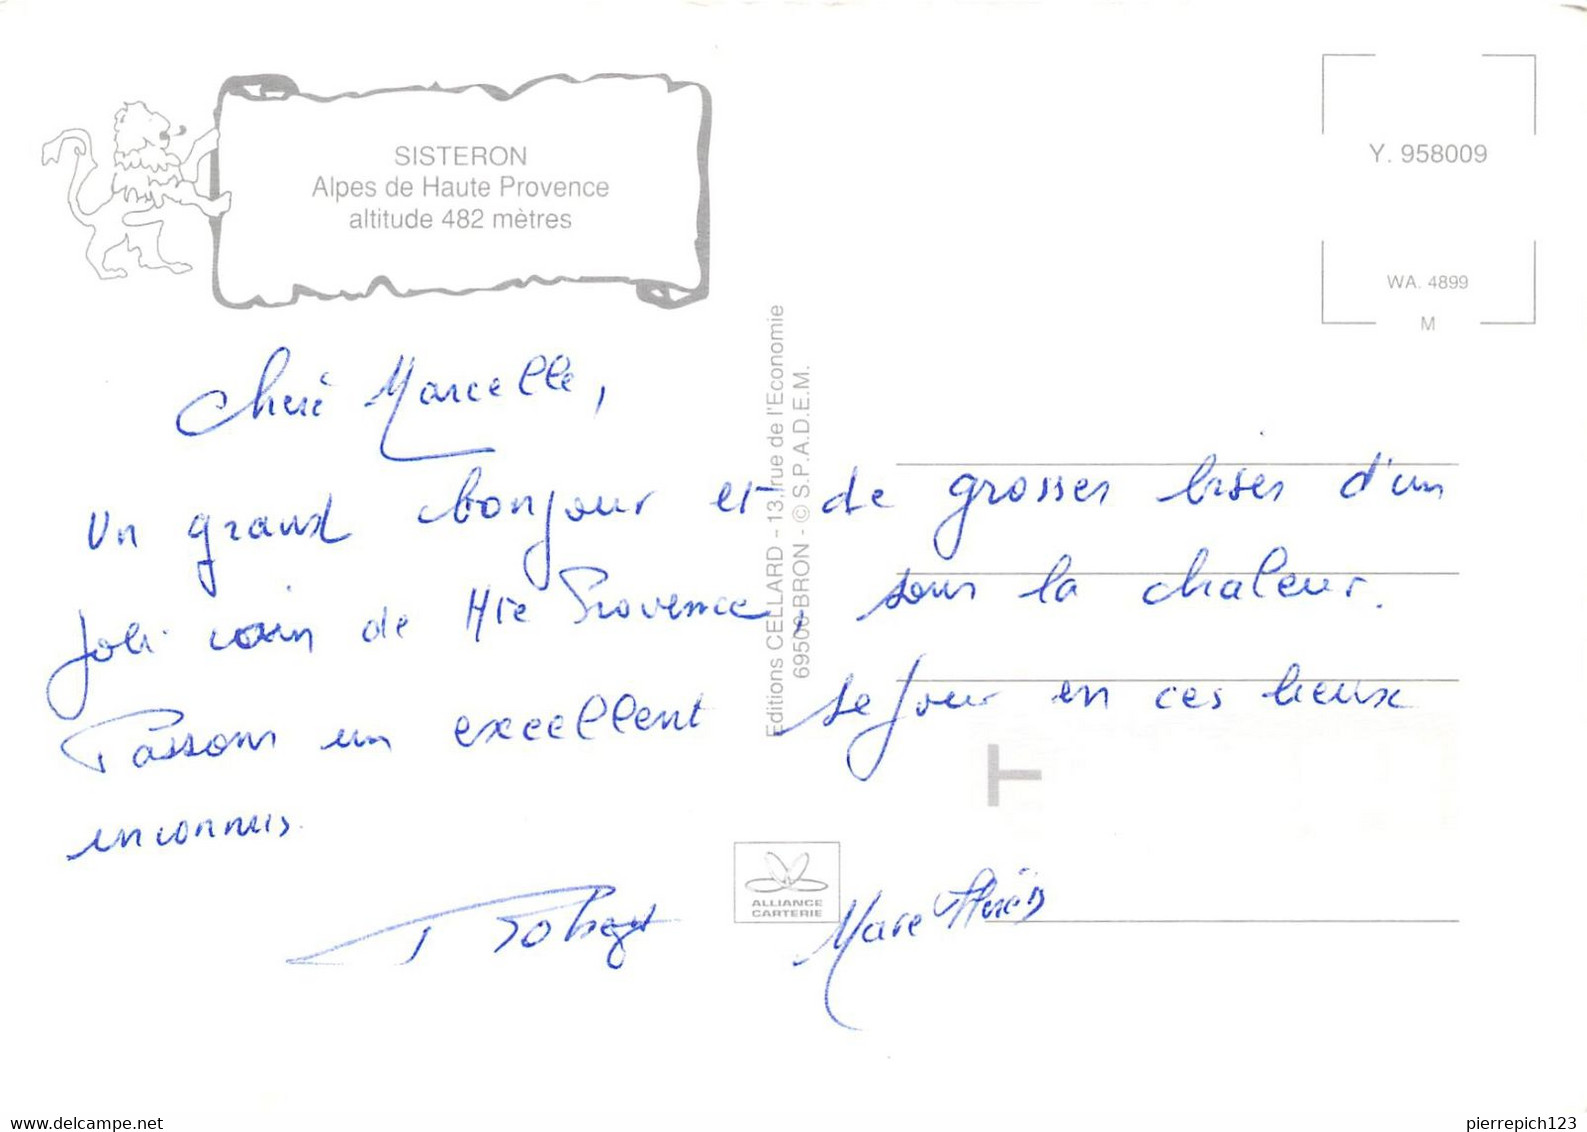 SISTERON
Alpes de Haute Provence
altitude 482 mètres
Y. 958009
WA. 4899
M
Editions CELLARD - 13, rue de l'Economie
69500 BRON - © S.P.A.D.E.M.
Chère Marcelle,
Un grand bonjour et de grosses bises d'un
joli coin de Hte Provence, sous la chaleur.
Passons un excellent séjour en ces lieux
inconnus.
T
ALLIANCE
CARTERIE
Robert
Marc
pierrepich123